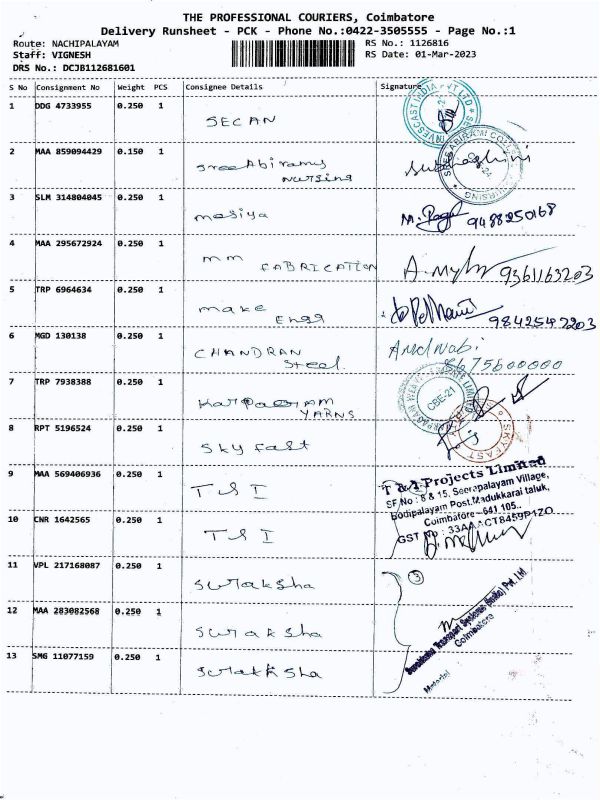 THE PROFESSIONAL COURIERS, Coimbatore
Delivery Runsheet - PCK - Phone No.:0422-3505555 - Page No.:1
Route: NACHIPALAYAM
RS No.: 1126816
Staff: VIGNESH
RS Date: 01-Mar-2023
DRS No.: DCJB112681601
S No Consignment No Weight PCS Consignee Details Signature
1 DDG 4733955 0.250 1
SECAN
2 MAA 859094429 0.150 1
Sree Abiramy
Nursing
3 SLM 314804045 0.250 1
mesiya
9488250168
4 MAA 295672924 0.250 1
mm FABRICATION
9361163203
5 TRP 6964634 0.250 1
make
Engg
9842547203
6 MGD 130138 0.250 1
CHANDRAN
Steel
8675600000
7 TRP 7938388 0.250 1
Karpagam
YARNS
CBE-21
8 RPT 5196524 0.250 1
Sky Fast
SKYFAST
9 MAA 569406936 0.250 1
T S I
T & I Projects Limited
SF No : 8 & 15, Seerapalayam Village,
Bodipalayam Post, Madukkarai taluk,
Coimbatore - 641 105..
GST No : 33AAACT8459P1ZO
10 CNR 1642565 0.250 1
T S I
11 VPL 217168087 0.250 1
Suraksha
3
12 MAA 283082568 0.250 1
Suraksha
Coimbatore
13 SMG 11077159 0.250 1
Surakksha